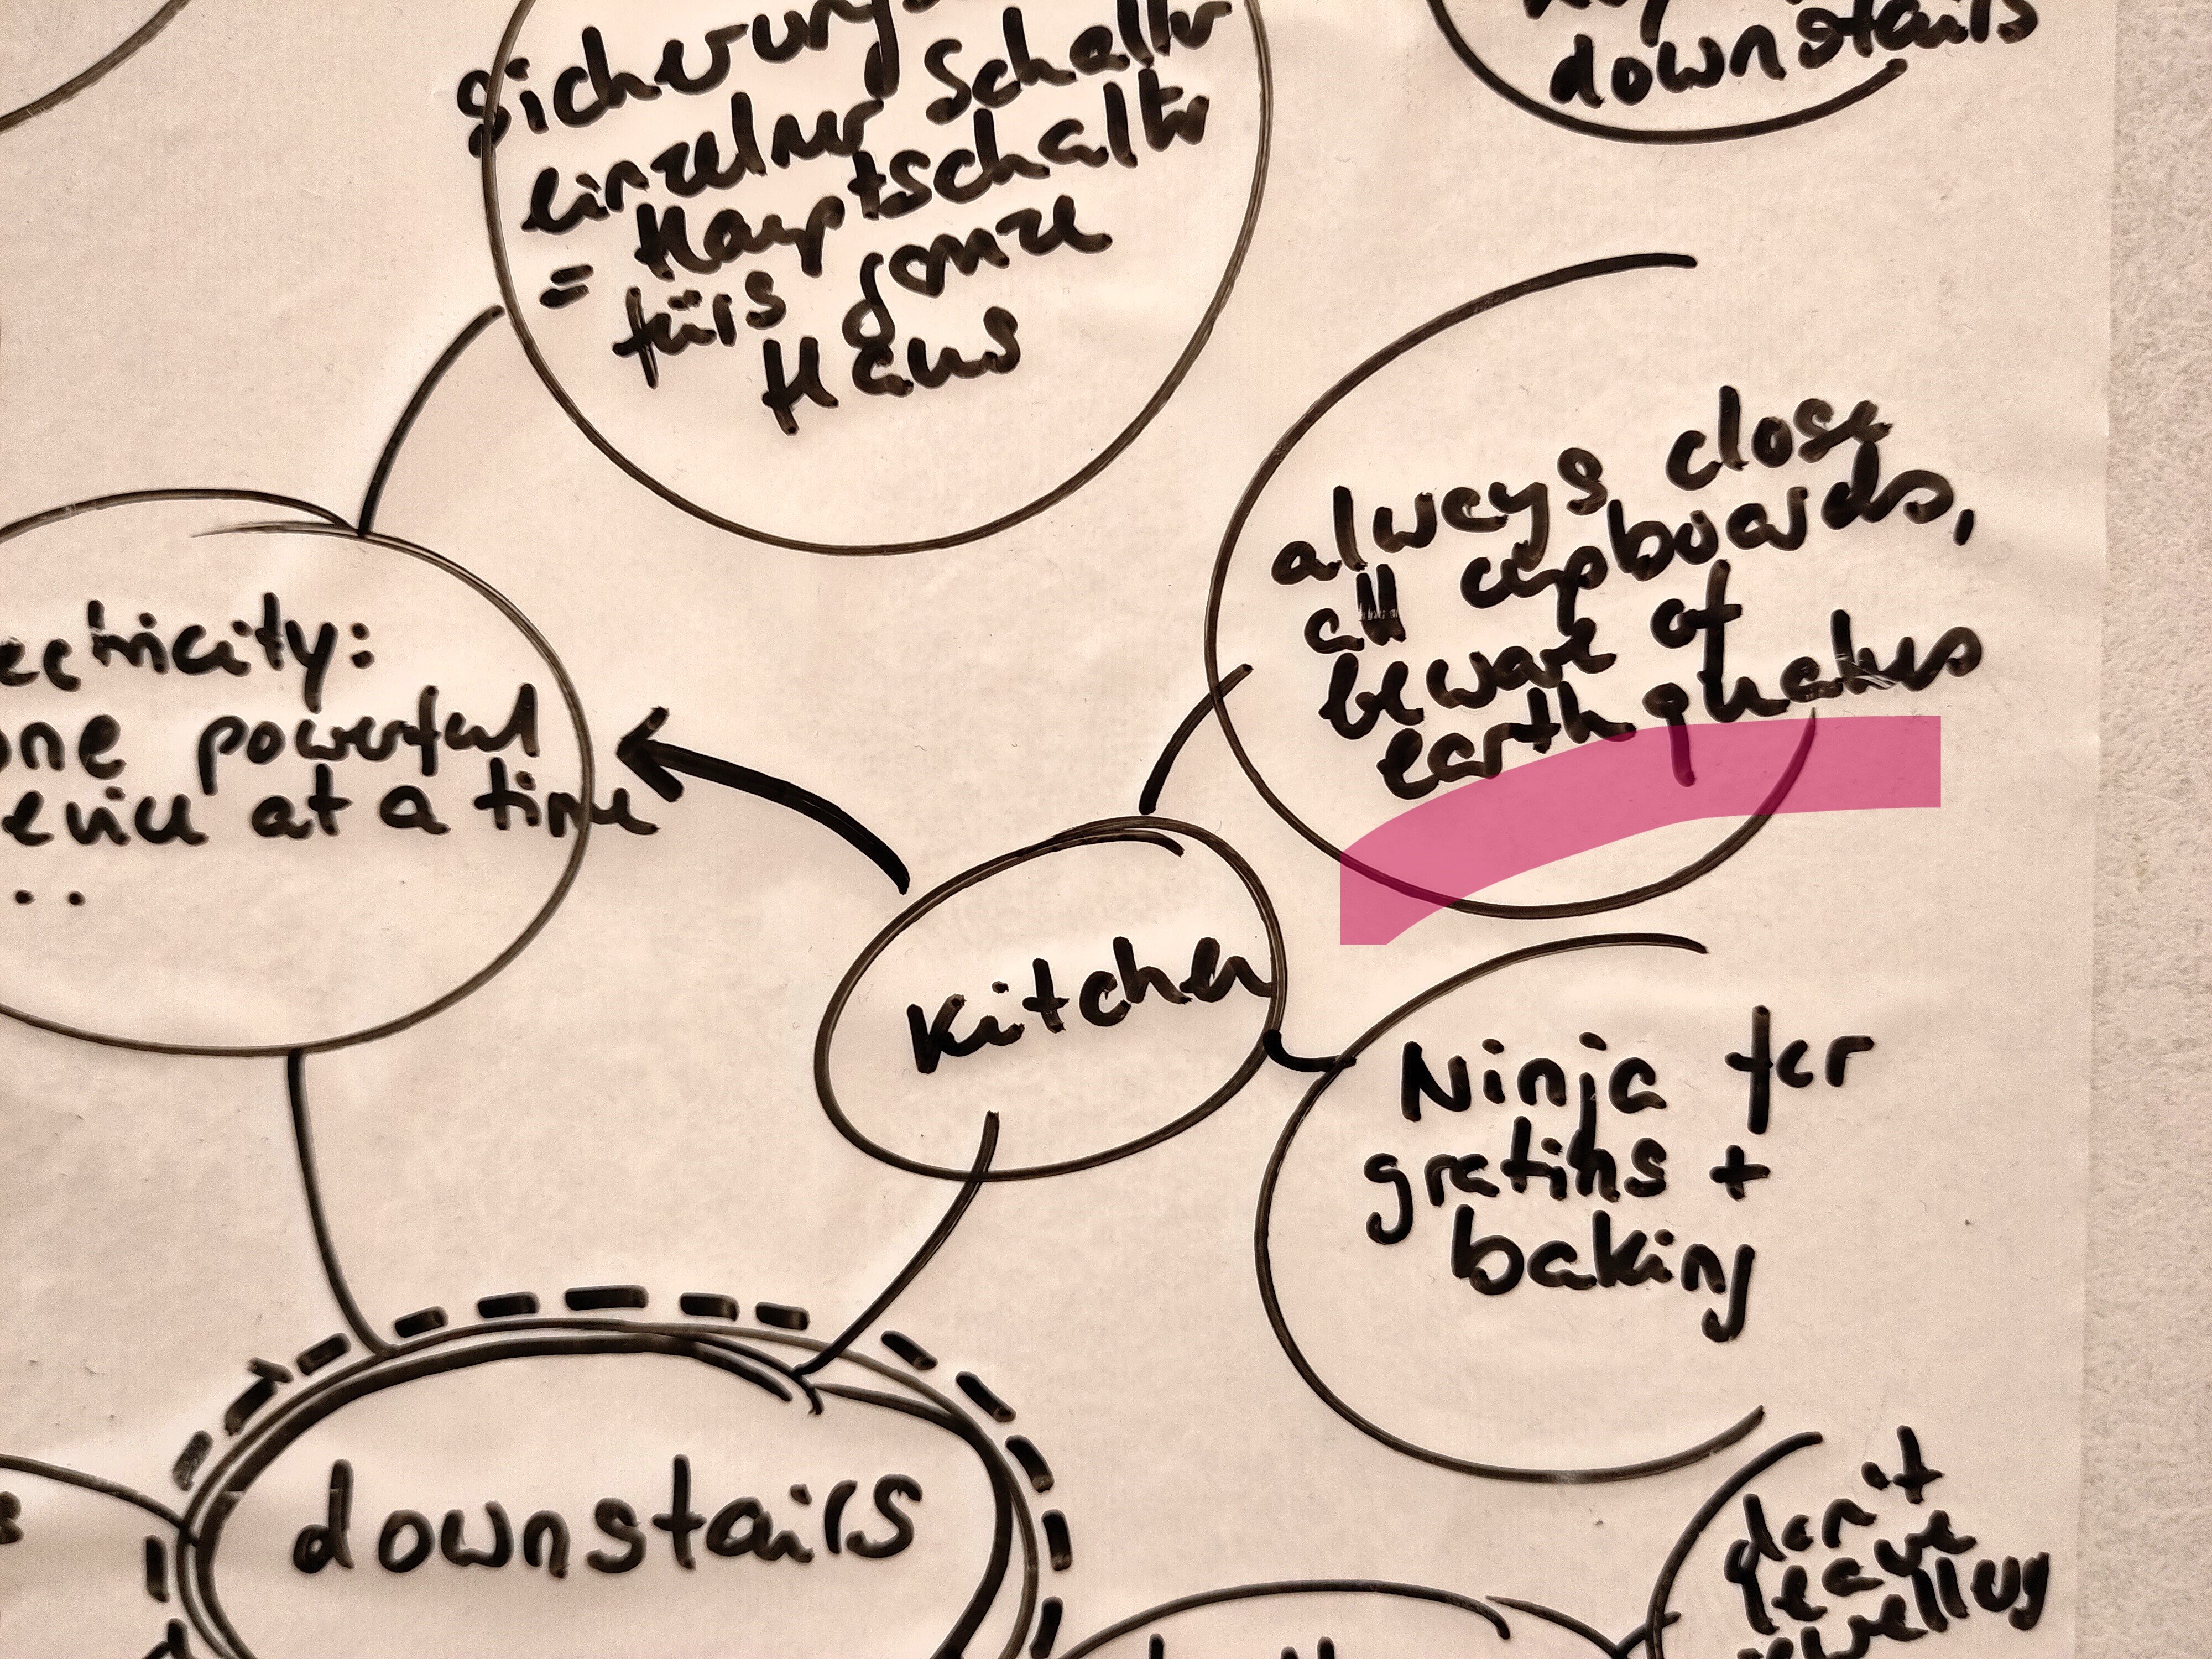 downstairs
einzelner Schalter
= Hauptschalter
fürs ganze
Haus
always close
all cupboards,
beware of
earthquakes
ectricity:
one powerful
evice at a time
..
Kitchen
Ninja for
gratins +
baking
downstairs
don't
leave